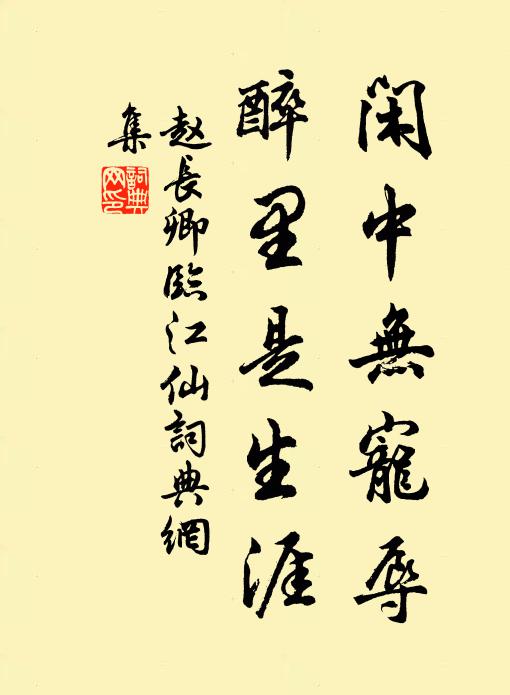 闲中無寵辱
醉里是生涯
赵長卿臨江仙詞典網
集
詞典網印